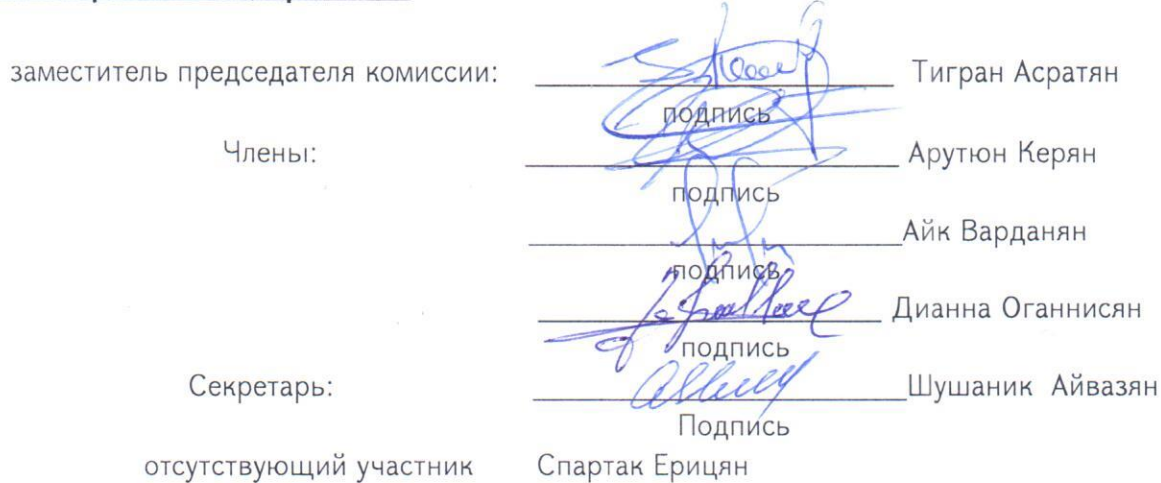 заместитель председателя комиссии: Тигран Асратян
подпись
Члены: Арутюн Керян
подпись
Айк Варданян
подпись
Дианна Оганнисян
подпись
Секретарь: Шушаник Айвазян
Подпись
отсутствующий участник Спартак Ерицян